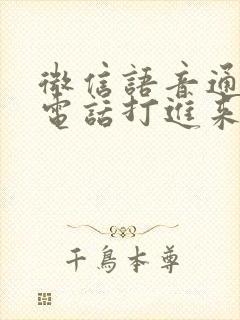 微信語音通
電話打進來
千鳥本尊